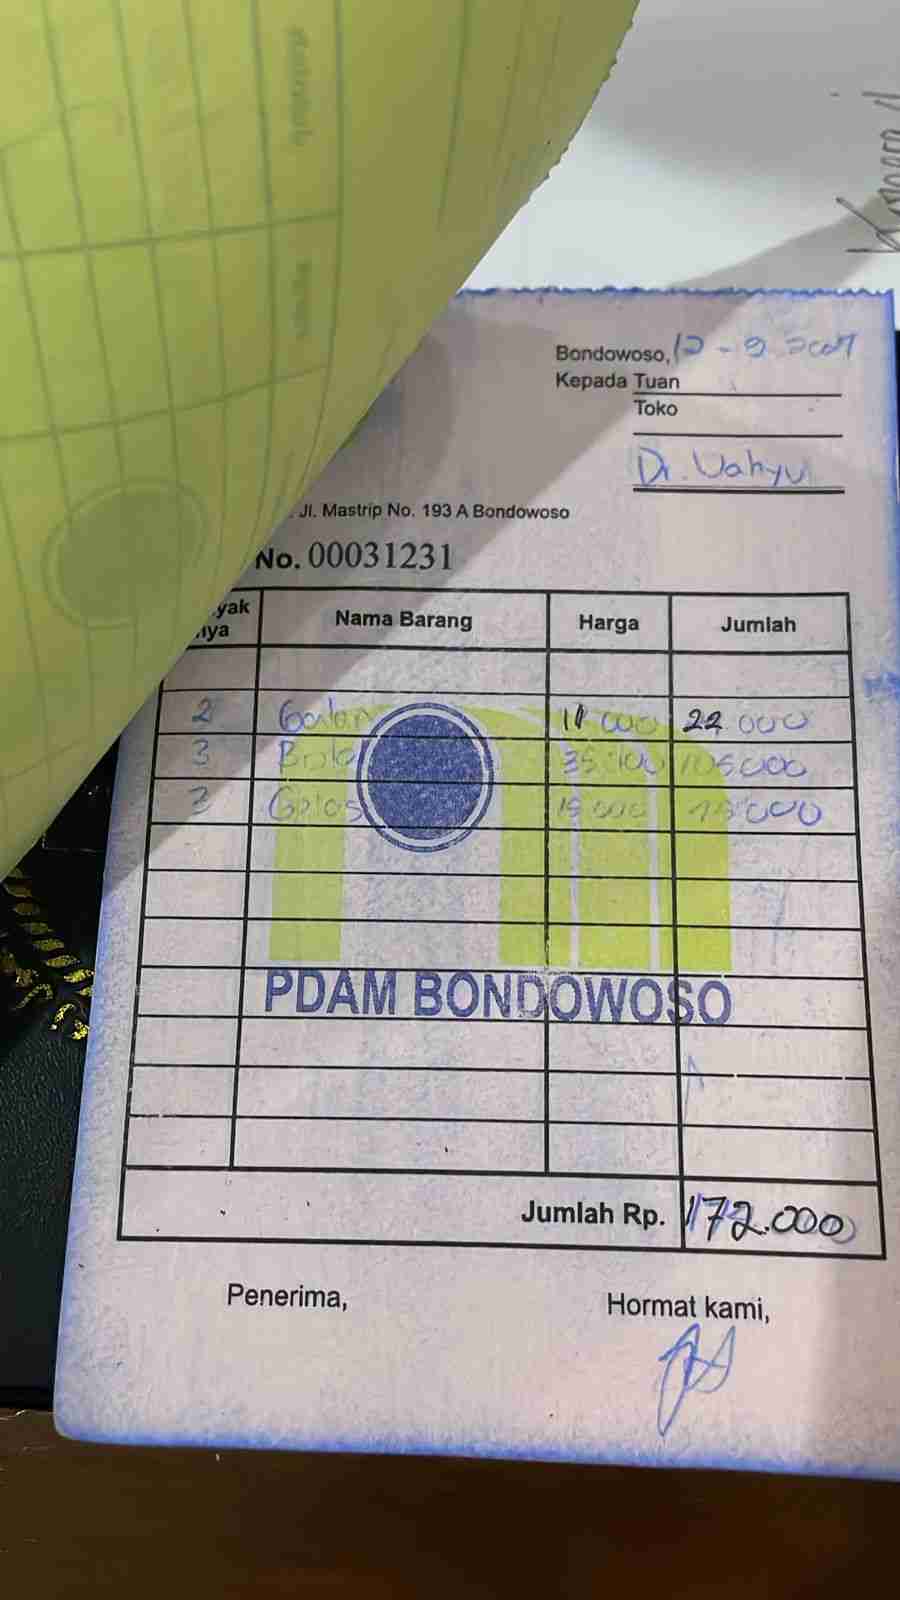 Bondowoso, 12 - 9
Kepada Tuan
Toko
Dr. Wahyu
Jl. Mastrip No. 193 A Bondowoso
No. 00031231
yak
nya
Nama Barang Harga Jumlah
2 Galon 11 000 22 000
3 Botol 35.000 105000
3 Gelas 15 000 000
PDAM BONDOWOSO
Jumlah Rp. 172.000
Penerima,
Hormat kami,